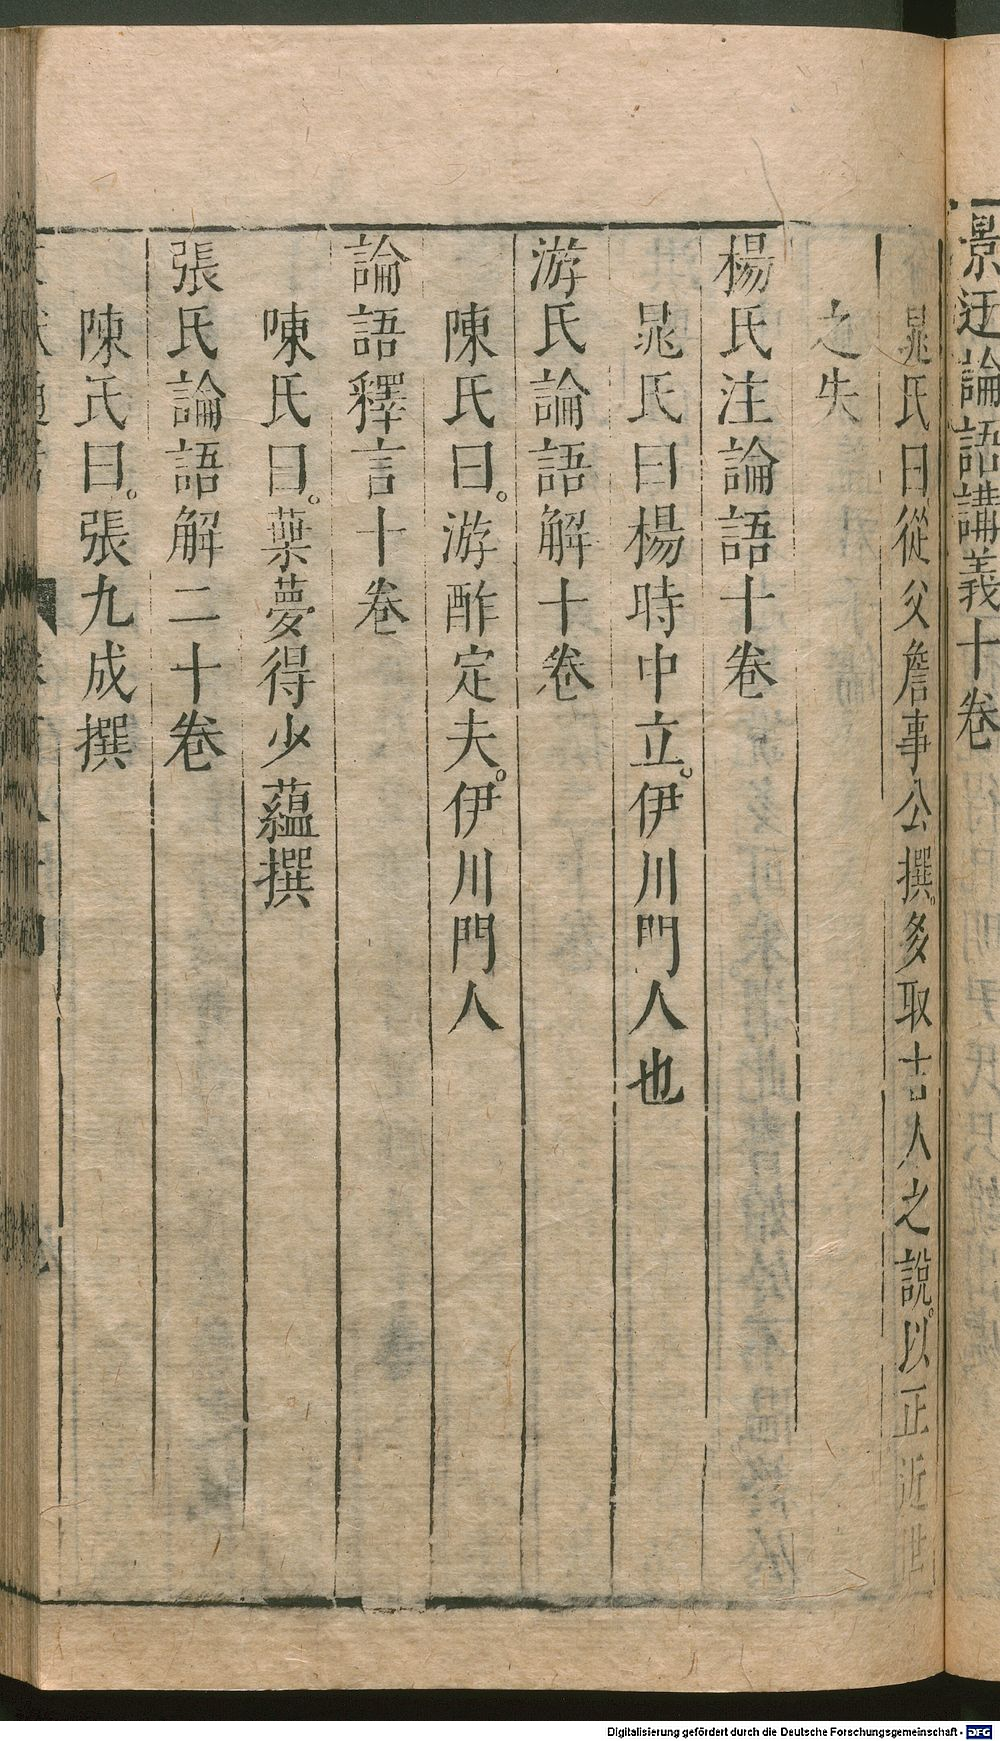 景迂論語講義十卷
晁氏曰從父詹事公撰。多取古人之說。以正近世
之失
楊氏注論語十卷
晁氏曰楊時中立。伊川門人也
游氏論語解十卷
陳氏曰。游酢定夫。伊川門人
論語釋言十卷
陳氏曰。葉夢得少蘊撰
張氏論語解二十卷
陳氏曰。張九成撰
Digitalisierung gefördert durch die Deutsche Forschungsgemeinschaft - DFG